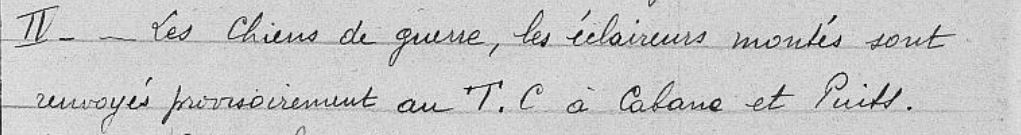 IV - - Les Chiens de guerre, les éclaireurs montés sont
renvoyés provisoirement au T.C à Cabane et Puits.